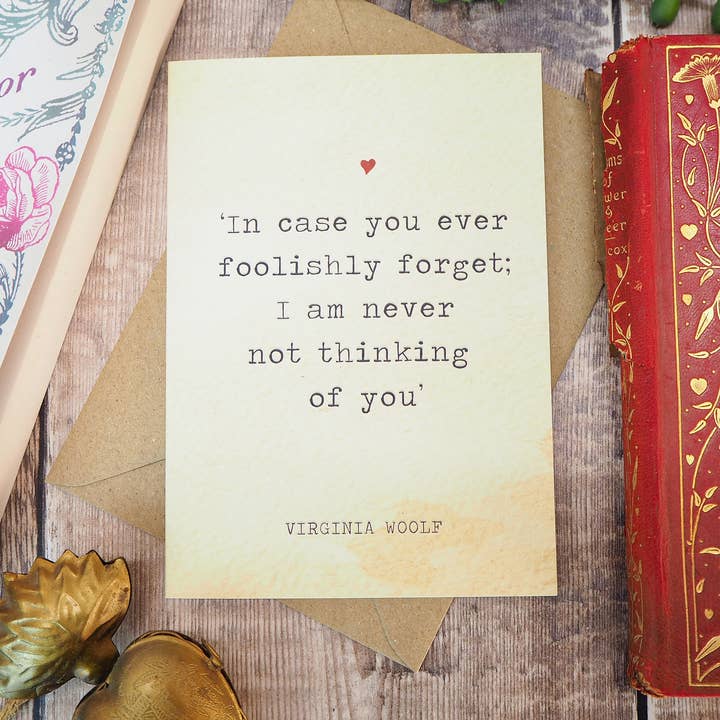 or
‘In case you ever
foolishly forget;
I am never
not thinking
of you’
VIRGINIA WOOLF
of
&
cox